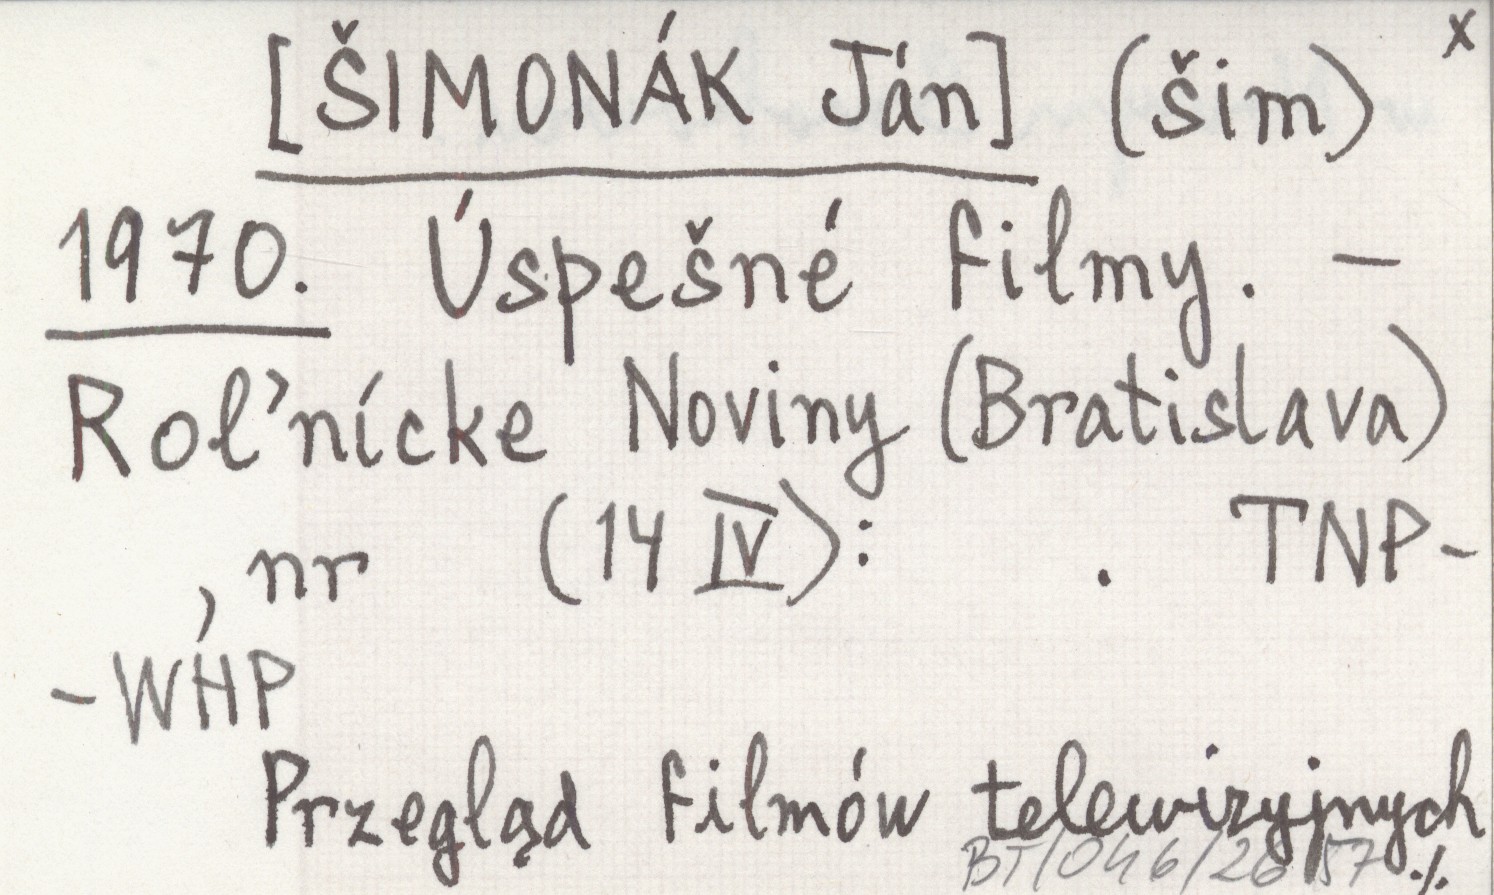 x
[ŠIMONÁK Ján] (šim)
1970. Úspešné filmy. –
Roľnícke Noviny (Bratislava)
, nr (14 IV): . TNP-
-WHP
Przegląd filmów telewizyjnych
BT/046/26/57 ./.